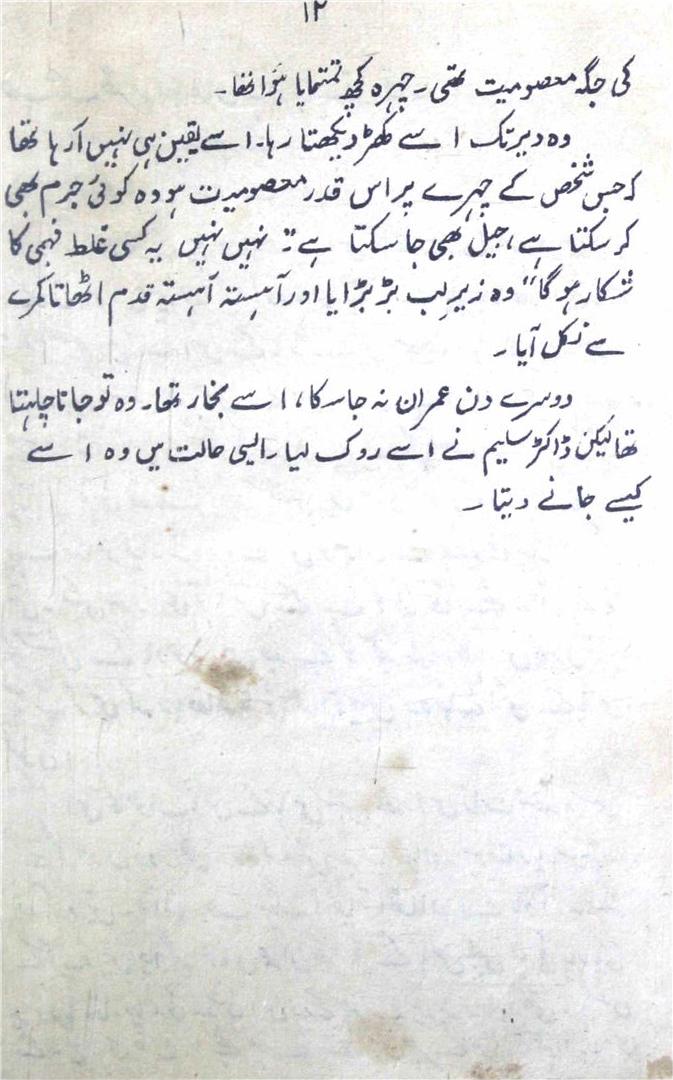 ۱۲
کی جگہ معصومیت تھی۔ چہرہ کچھ تمتمایا ہؤا تھا۔
وہ دیر تک اسے کھڑا دیکھتا رہا۔ اسے یقین ہی نہیں آ رہا تھا
کہ جس شخص کے چہرے پر اس قدر معصومیت ہو وہ کوئی جرم بھی
کر سکتا ہے، جیل بھی جا سکتا ہے "نہیں نہیں یہ کسی غلط فہمی کا
شکار ہو گا" وہ زیرِ لب بڑبڑایا اور آہستہ آہستہ قدم اٹھاتا کمرے
سے نکل آیا۔
دوسرے دن عمران نہ جا سکا، اسے بخار تھا۔ وہ تو جانا چاہتا
تھا لیکن ڈاکٹر سلیم نے اسے روک لیا۔ ایسی حالت میں وہ اسے
کیسے جانے دیتا۔